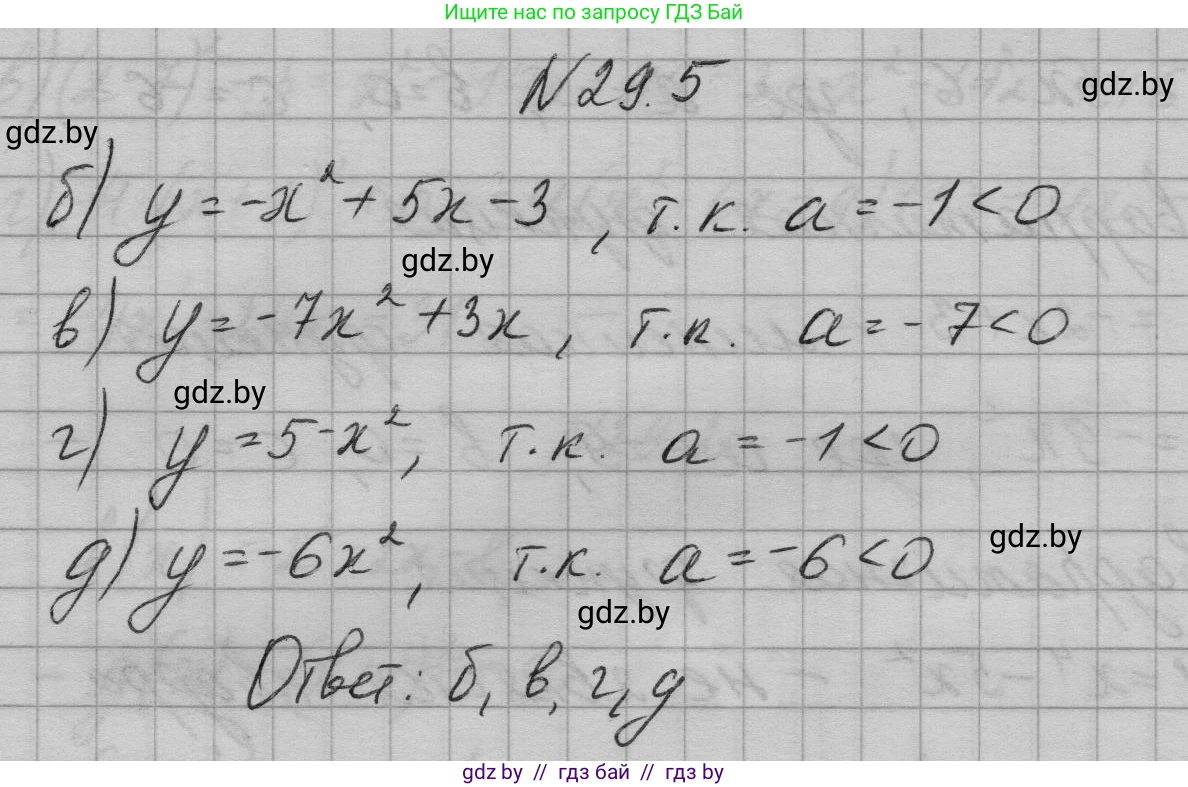 Ищите нас по запросу ГДЗ Бай
N 29.5
gdz.by
gdz.by
б) y = -x² + 5x - 3, т.к. a = -1 < 0
gdz.by
в) y = -7x² + 3x, т.к. a = -7 < 0
gdz.by
г) y = 5 - x², т.к. a = -1 < 0
gdz.by
д) y = -6x², т.к. a = -6 < 0
gdz.by
Ответ: б, в, г, д
gdz by // гдз бай // гдз by